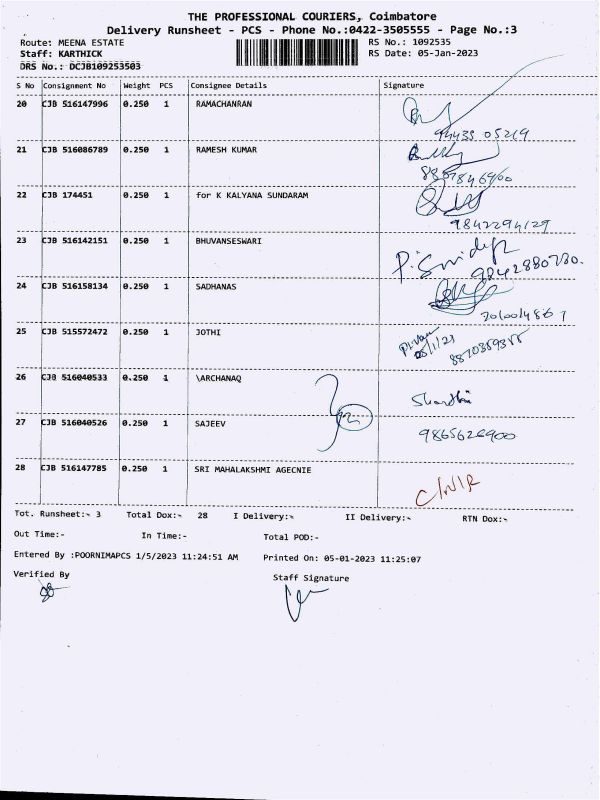 THE PROFESSIONAL COURIERS, Coimbatore
Delivery Runsheet - PCS - Phone No.:0422-3505555 - Page No.:3
Route: MEENA ESTATE
RS No.: 1092535
Staff: KARTHICK
RS Date: 05-Jan-2023
DRS No.: DCJB109253503
S No Consignment No Weight PCS Consignee Details Signature
20 CJB 516147996 0.250 1 RAMACHANRAN
94435 05219
21 CJB 516086789 0.250 1 RAMESH KUMAR
22 CJB 174451 0.250 1 for K KALYANA SUNDARAM
9842294129
23 CJB 516142151 0.250 1 BHUVANSESWARI
9842880780.
24 CJB 516158134 0.250 1 SADHANAS
25 CJB 515572472 0.250 1 JOTHI
05/1/23
26 CJB 516040533 0.250 1 \ARCHANAQ
27 CJB 516040526 0.250 1 SAJEEV
9865626900
28 CJB 516147785 0.250 1 SRI MAHALAKSHMI AGECNIE
Tot. Runsheet:- 3 Total Dox:- 28 I Delivery:- II Delivery:- RTN Dox:-
Out Time:- In Time:- Total POD:-
Entered By :POORNIMAPCS 1/5/2023 11:24:51 AM Printed On: 05-01-2023 11:25:07
Verified By
Staff Signature